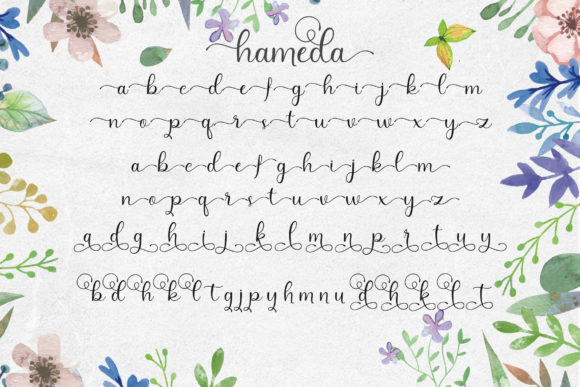 hameda
a b c d e f g h i j k l m
n o p q r s t u v w x y z
a b c d e f g h i j k l m
n o p q r s t u v w x y z
a d g h i j k l m n p r t u y
b d h k l t g j p y h m n u d h k l t